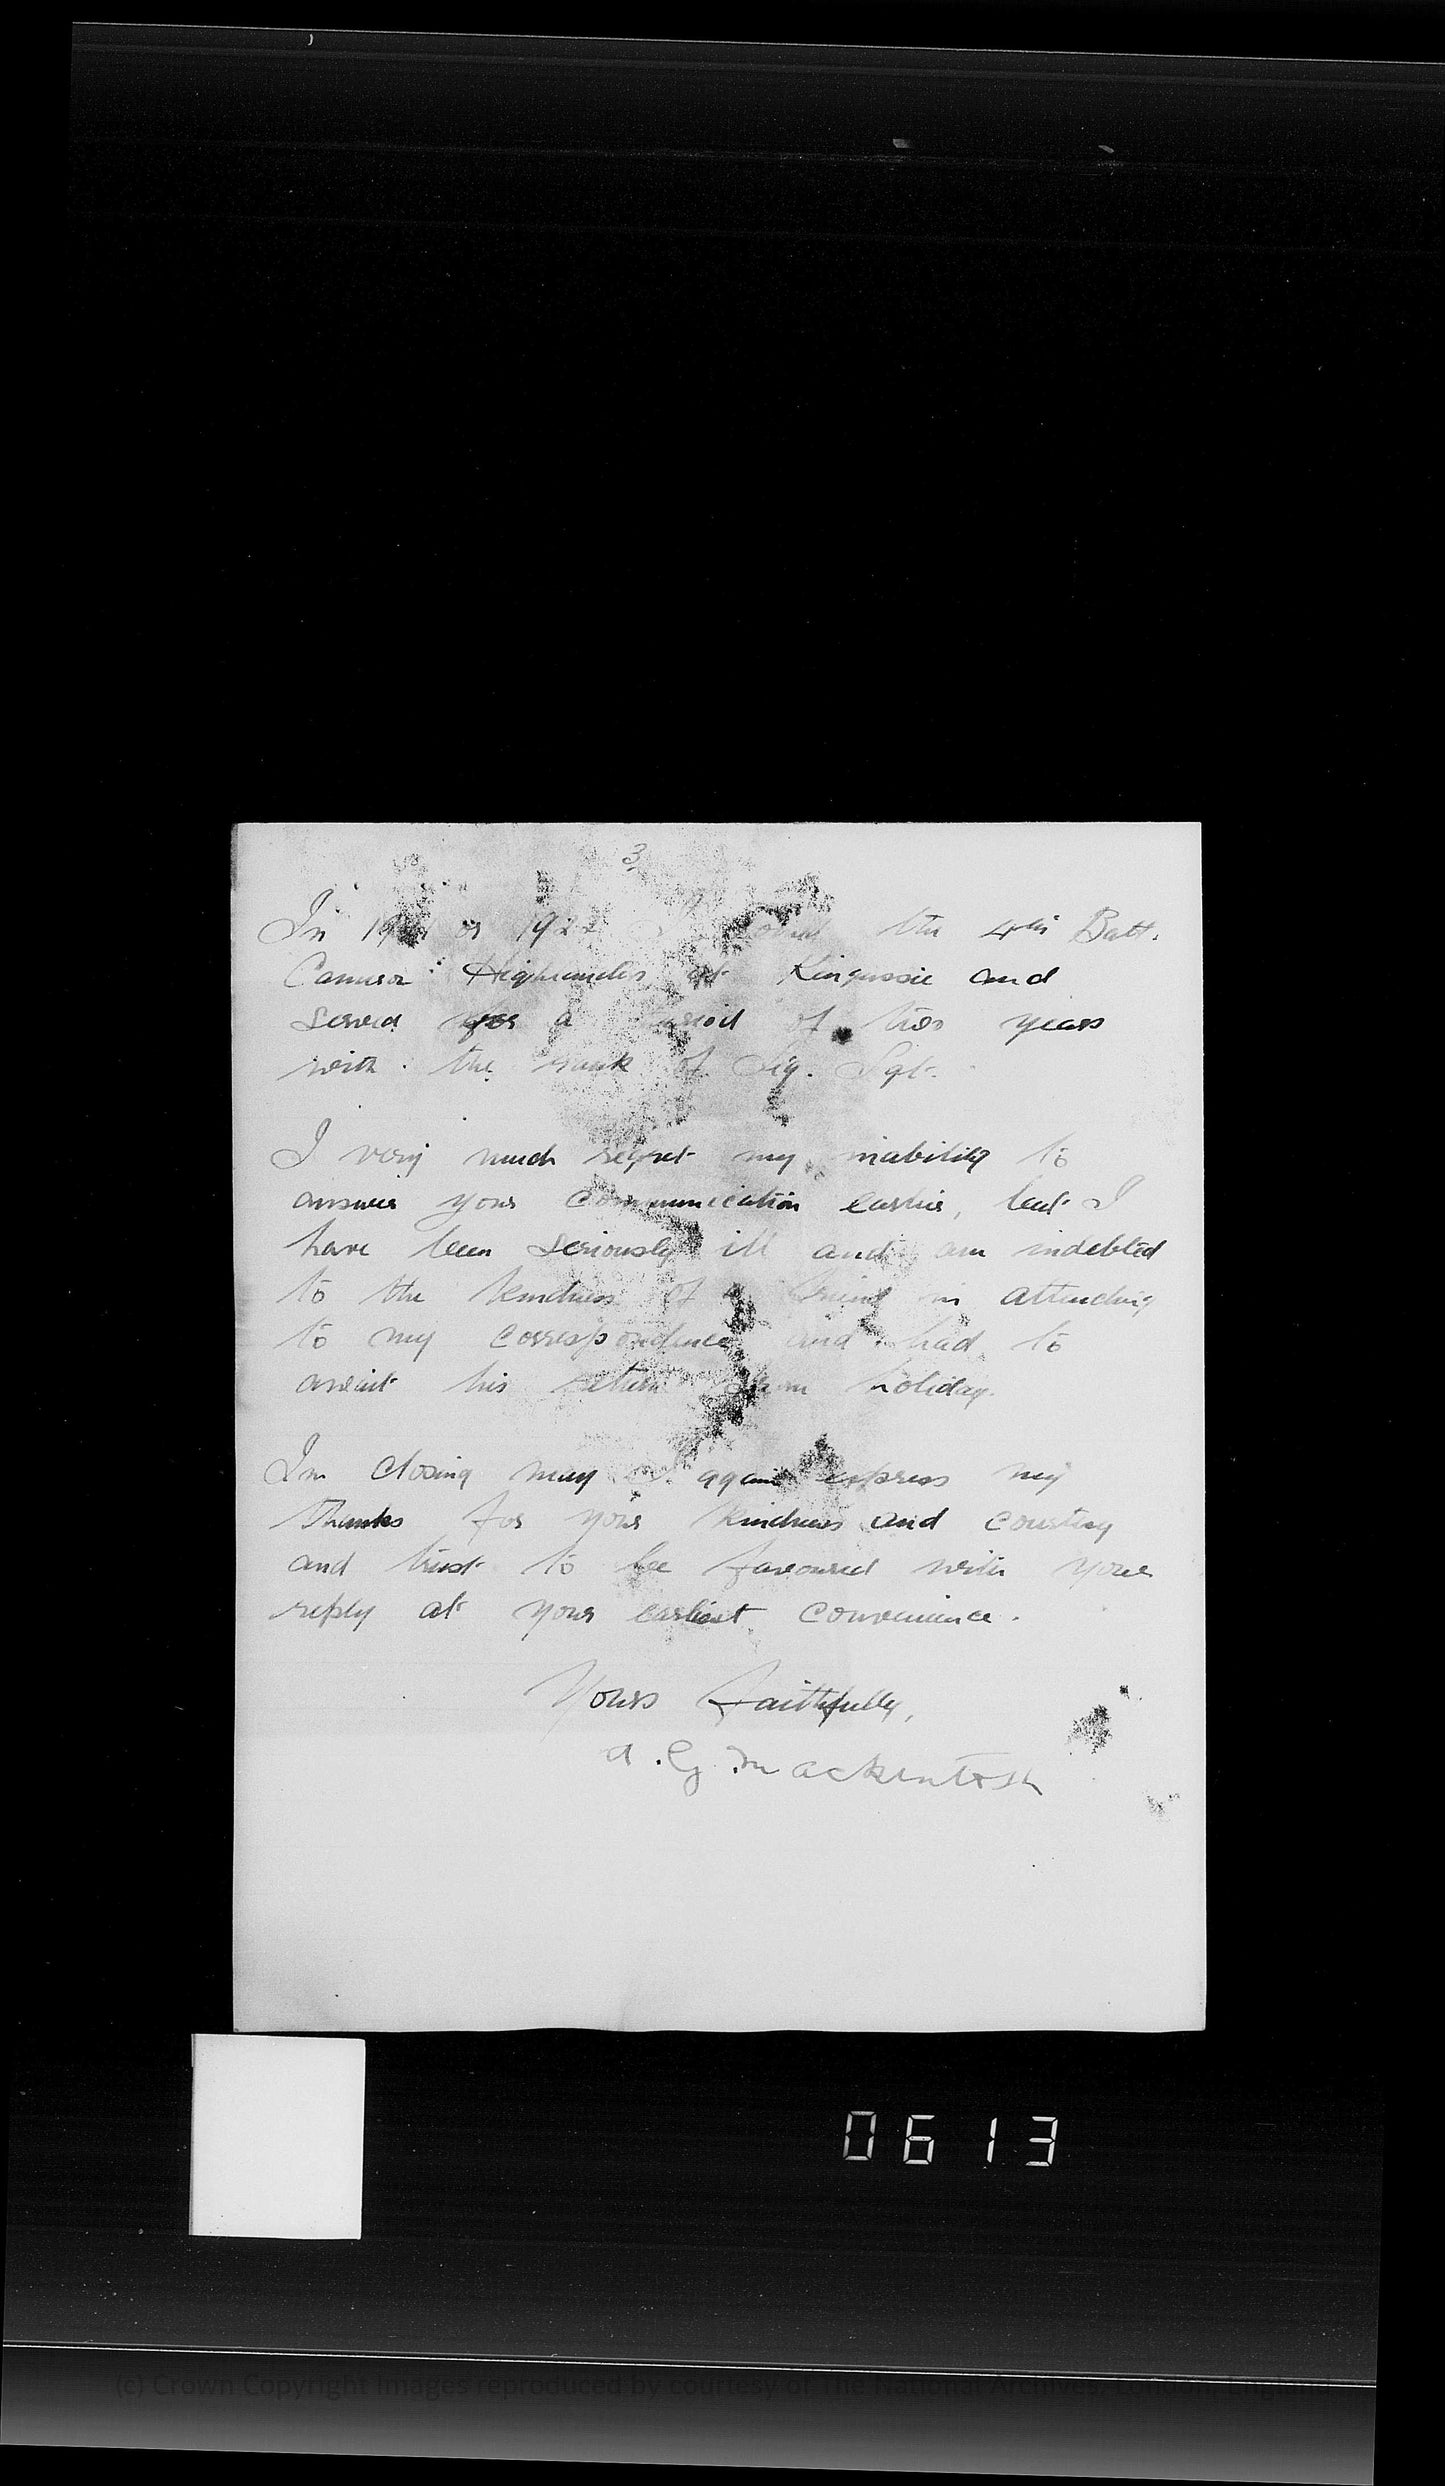 3.
In 1921 or 1922 I joined the 4th Batt.
Cameron Highlanders at Kingussie and
served for a period of two years
with the rank of Sig. Sgt.
I very much regret my inability to
answer your communication earlier, but I
have been seriously ill and am indebted
to the kindness of a friend in attending
to my correspondence and had to
await his return from holiday.
In closing may I again express my
thanks for your kindness and courtesy
and trust to be favoured with your
reply at your earliest convenience.
Yours faithfully,
A. G. Mackintosh
0613
(c) Crown Copyright Images reproduced by courtesy of The National Archives, London, England.